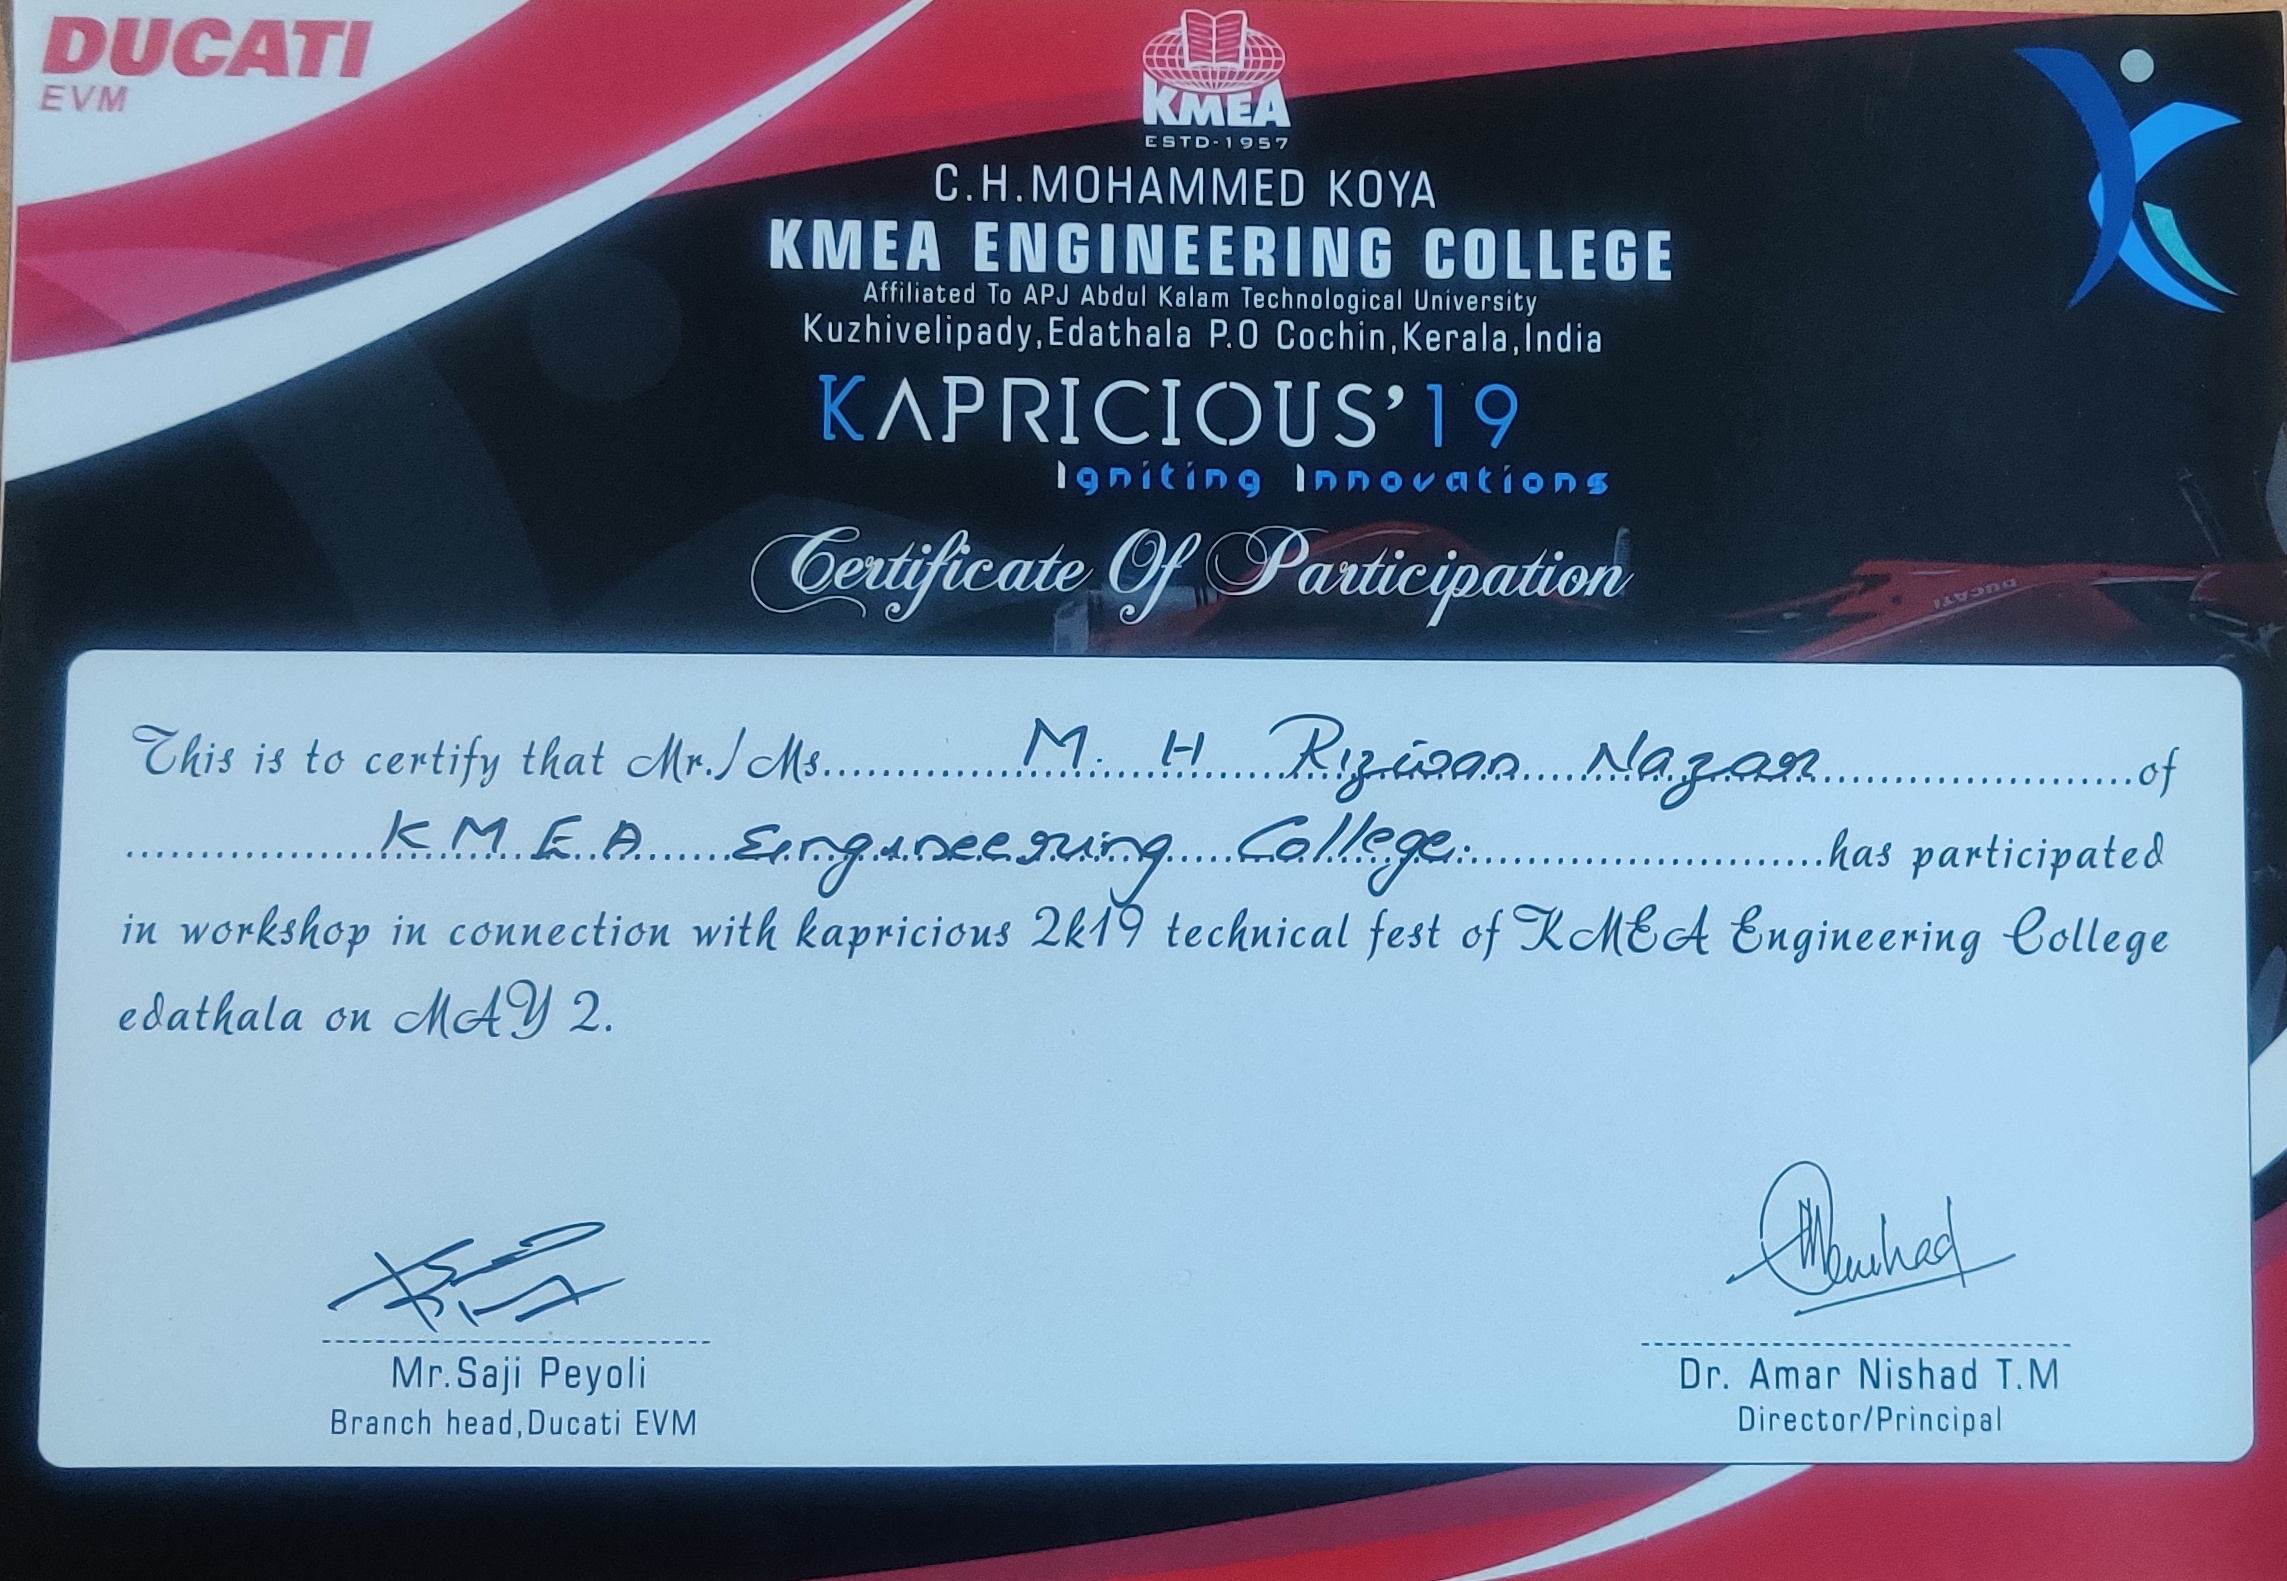 DUCATI
EVM
KMEA
ESTD-1957
C.H.MOHAMMED KOYA
KMEA ENGINEERING COLLEGE
Affiliated To APJ Abdul Kalam Technological University
Kuzhivelipady,Edathala P.O Cochin,Kerala,India
KAPRICIOUS'19
Igniting Innovations
Certificate Of Participation
DUCATI
This is to certify that Mr./Ms. M. H Riziwan Nazar of
K M E A Engineering College. has participated
in workshop in connection with kapricious 2k19 technical fest of KMEA Engineering College
edathala on MAY 2.
Mr.Saji Peyoli
Branch head,Ducati EVM
Dr. Amar Nishad T.M
Director/Principal